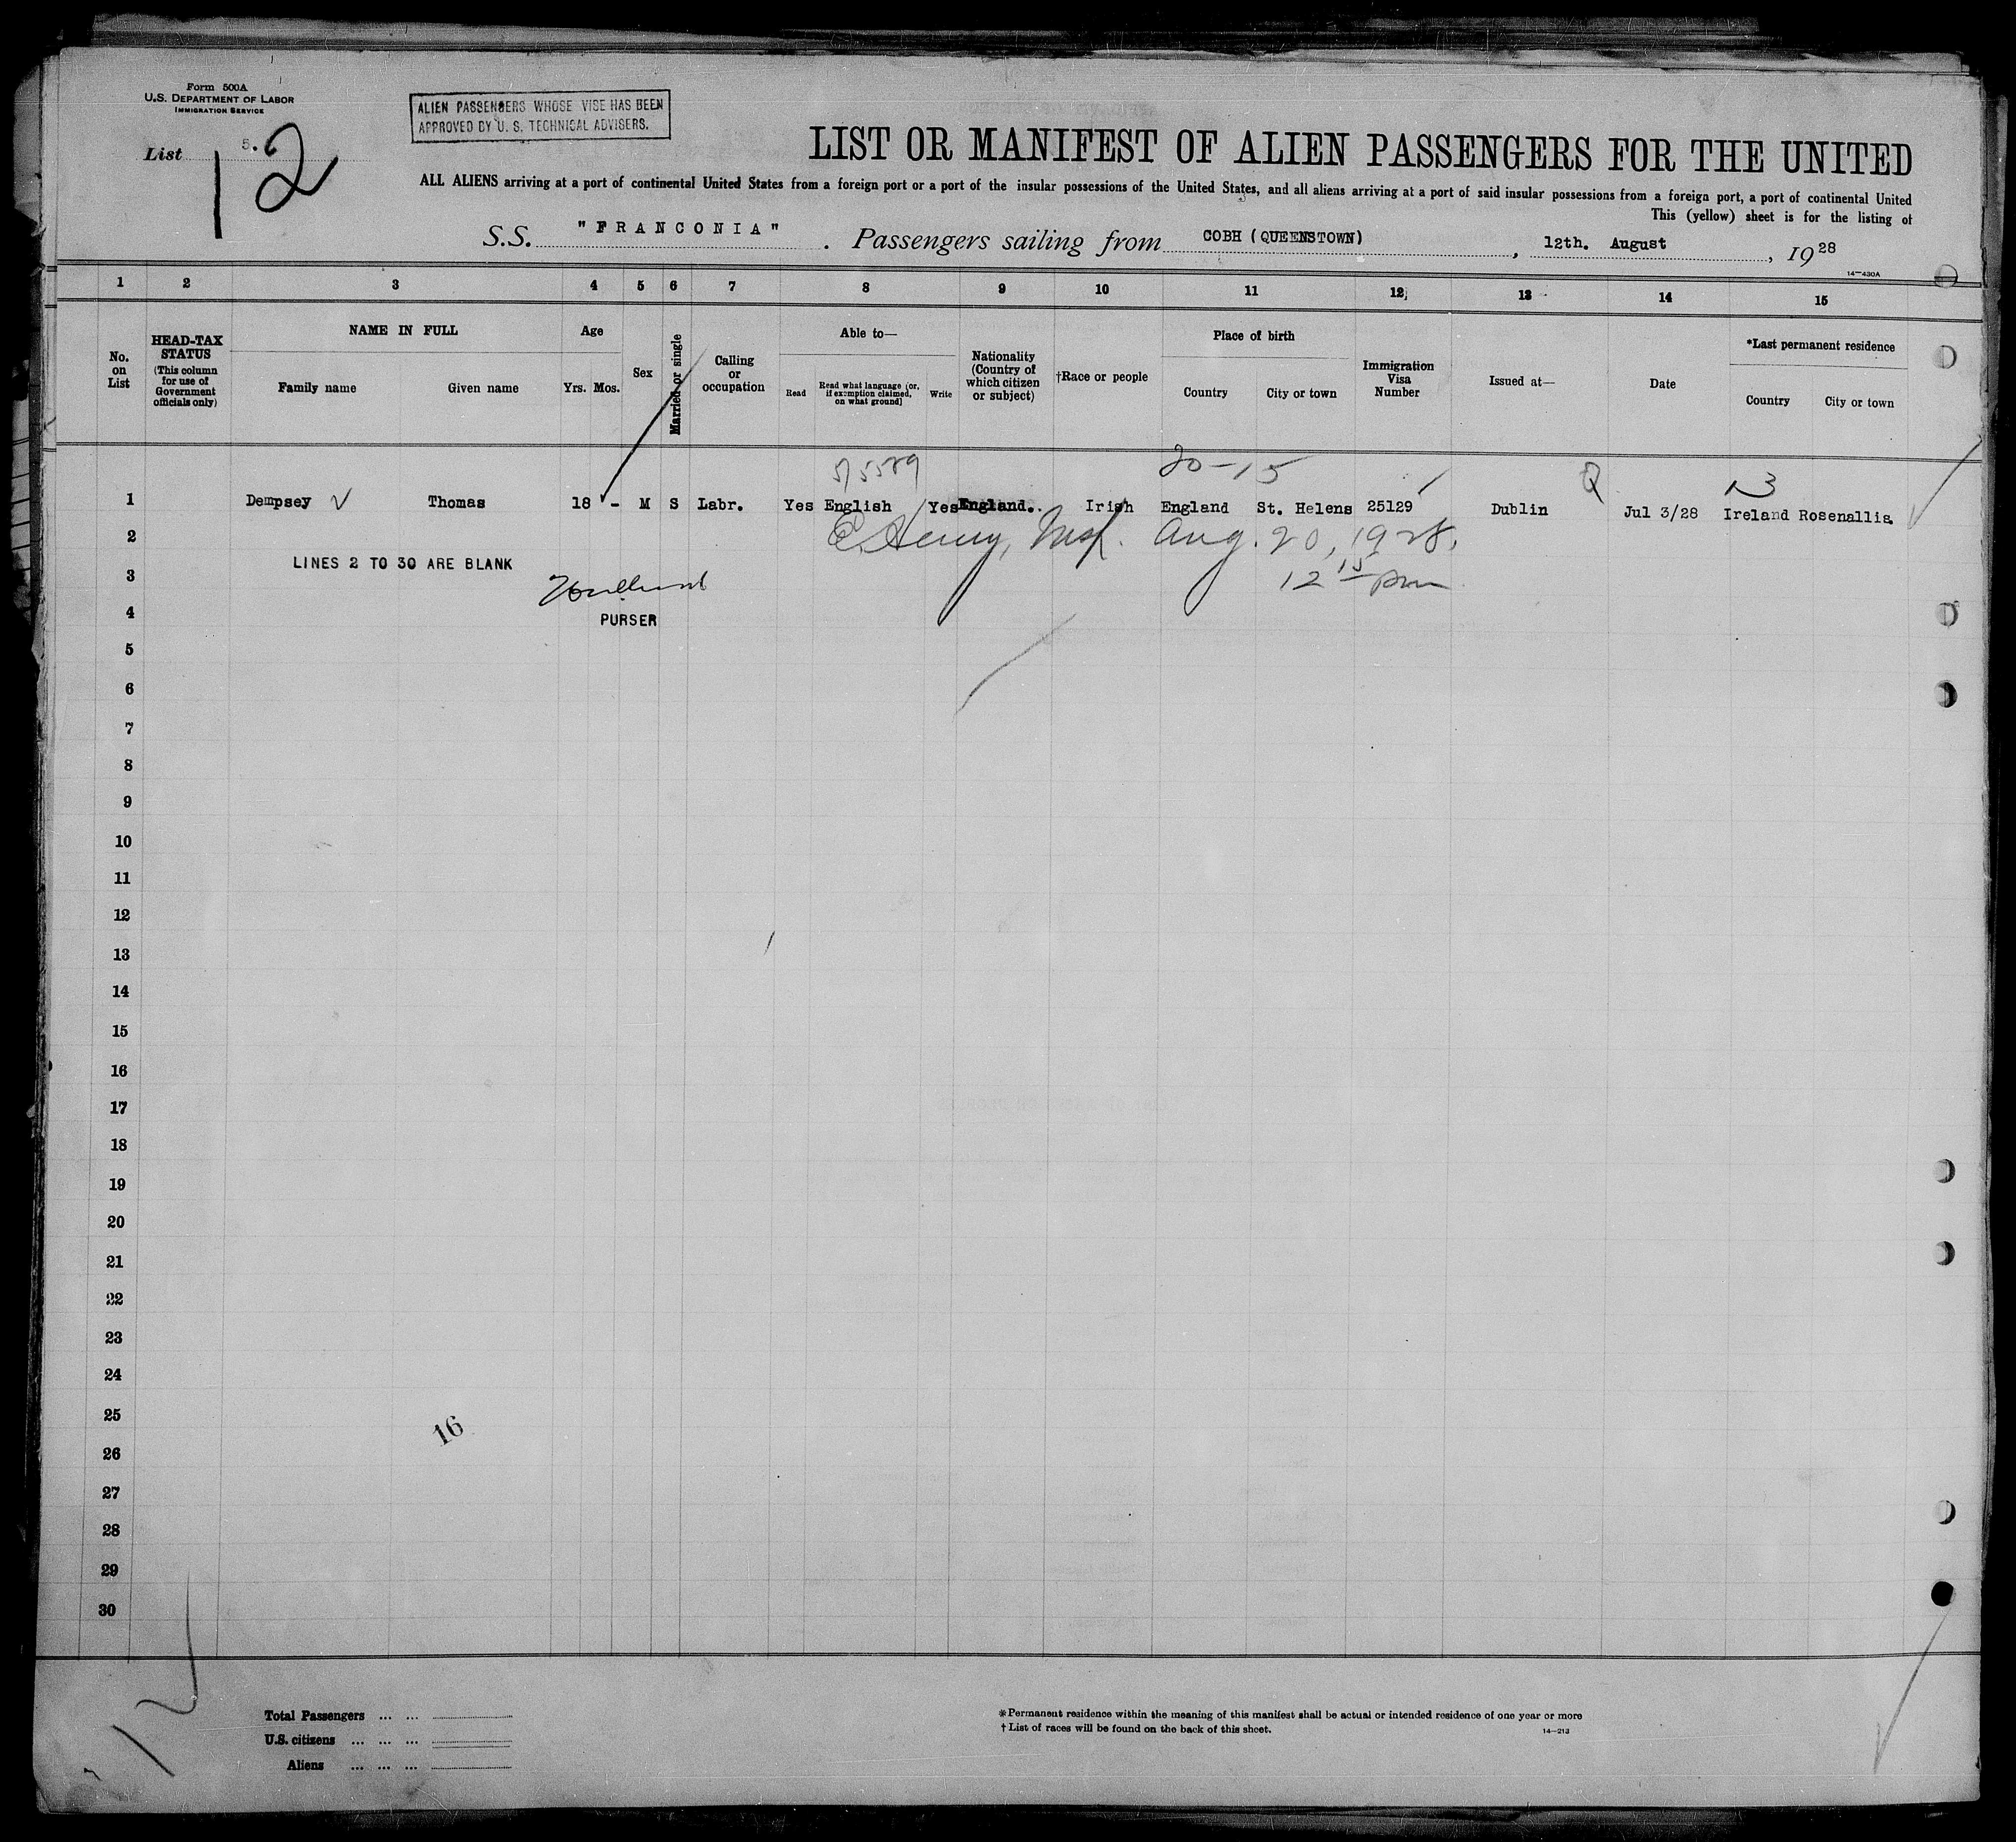 Form 500A
U.S. DEPARTMENT OF LABOR
IMMIGRATION SERVICE
List 5.
12
ALIEN PASSENGERS WHOSE VISE HAS BEEN
APPROVED BY U. S. TECHNICAL ADVISERS.
LIST OR MANIFEST OF ALIEN PASSENGERS FOR THE UNITED
ALL ALIENS arriving at a port of continental United States from a foreign port or a port of the insular possessions of the United States, and all aliens arriving at a port of said insular possessions from a foreign port, a port of continental United
This (yellow) sheet is for the listing of
S.S. "FRANCONIA". Passengers sailing from COBH (QUEENSTOWN), 12th. August, 1928
14-430A
1 2 3 4 5 6 7 8 9 10 11 12 13 14 15
No. on List
HEAD-TAX STATUS
(This column for use of Government officials only)
NAME IN FULL
Family name Given name
Age
Yrs. Mos.
Sex
Married or single
Calling or occupation
Able to—
Read
Read what language (or, if exemption claimed, on what ground)
Write
Nationality (Country of which citizen or subject)
†Race or people
Place of birth
Country City or town
Immigration Visa Number
Issued at—
Date
*Last permanent residence
Country City or town
20-15
1 Dempsey Thomas 18 - M S Labr. Yes English Yes England. Irish England St. Helens 25129 Dublin Jul 3/28 Ireland Rosenallis.
2
Henry, Insp. Aug. 20, 1928.
LINES 2 TO 30 ARE BLANK
3
12 15 pm
4
PURSER
5
6
7
8
9
10
11
12
13
14
15
16
17
18
19
20
21
22
23
24
25
16
26
27
28
29
30
12
Total Passengers ... ...
U.S. citizens ... ... ...
Aliens ... ... ...
*Permanent residence within the meaning of this manifest shall be actual or intended residence of one year or more
† List of races will be found on the back of this sheet.
14-213